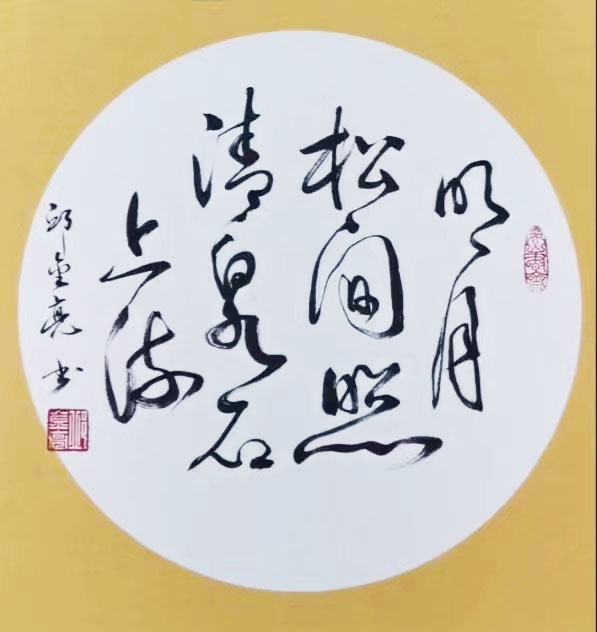 明月
松间照
清泉石
上流
邱金亮书